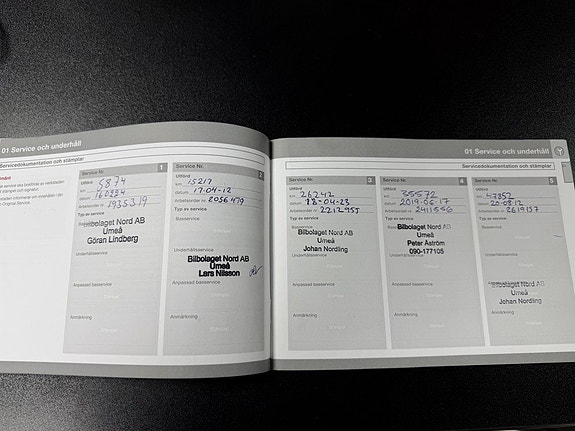 01 Service och underhåll
Servicedokumentation och stämplar
Service Nr. 1
Utförd
km 5874
datum
Arbetsorder nr 1935379
Typ av service
Basservice
Bilbolaget Nord AB
Umeå
Göran Lindberg
Underhållsservice
Anpassad basservice
Anmärkning
Service Nr. 2
Utförd
km 15217
datum 17-04-12
Arbetsorder nr 2056479
Typ av service
Basservice
Underhållsservice
Bilbolaget Nord AB
Umeå
Lars Nilsson
Anpassad basservice
Anmärkning
01 Service och underhåll
Servicedokumentation och stämplar
Service Nr. 3
Utförd
km 26242
datum 18-04-23
Arbetsorder nr 2212955
Typ av service
Basservice
Bilbolaget Nord AB
Umeå
Johan Nordling
Underhållsservice
Anpassad basservice
Anmärkning
Service Nr. 4
Utförd
km 35572
datum 2019-06-17
Arbetsorder nr 2411556
Typ av service
Basservice
Bilbolaget Nord AB
Umeå
Peter Åström
090-177105
Underhållsservice
Anpassad basservice
Anmärkning
Service Nr. 5
Utförd
km 47852
datum 20-08-12
Arbetsorder nr 2619157
Typ av service
Basservice
Underhållsservice
Anpassad basservice
Bilbolaget Nord AB
Umeå
Johan Nordling
Anmärkning